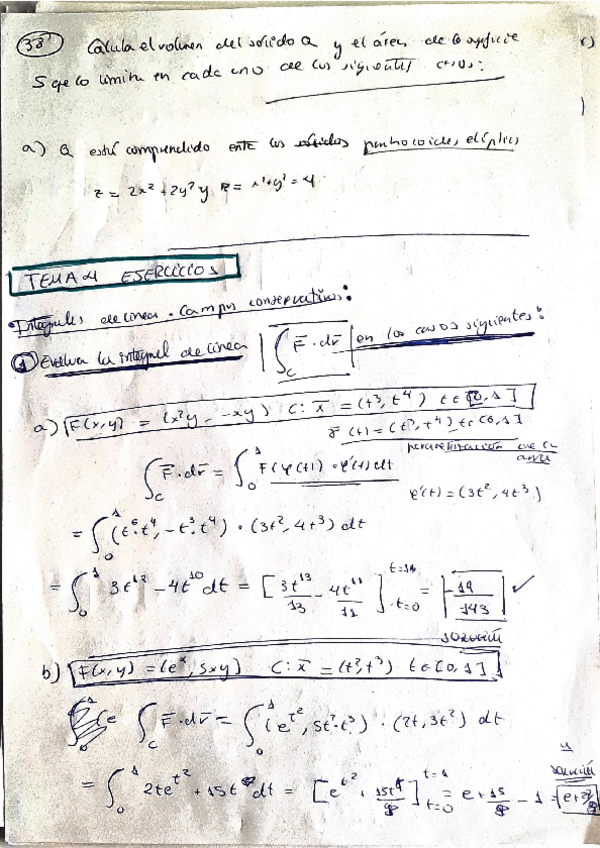 38 Calcula el volumen del sólido Q y el área de la superficie
S que lo limita en cada uno de los siguientes casos:
a) Q está comprendido entre los paraboloides elípticos
z = 2x² + 2y² y
TEMA 4 EJERCICIOS
Integrales de línea. Campos conservativos:
1 Evalua la integral de línea | ∫_C F̄ · dr̄ | en los casos siguientes:
a) F(x,y) = (x²y, -xy) C: x̄ = (t³, t⁴) t ∈ [0,1]
r̄(t) = (t³, t⁴) t ∈ [0,1]
parametrización de la
∫_C F̄ · dr̄ = ∫_0^1 F(φ(t)) · φ'(t) dt
φ'(t) = (3t², 4t³)
= ∫_0^1 (t⁶·t⁴, -t³·t⁴) · (3t², 4t³) dt
= ∫_0^1 3t¹² - 4t¹⁰ dt = [3t¹³/13 - 4t¹¹/11]_{t=0}^{t=1} = -19/143 ✓
solución
b) F(x,y) = (eˣ, 5xy) C: x̄ = (t², t³) t ∈ [0,1]
∫_C F̄ · dr̄ = ∫_0^1 (e^{t²}, 5t²·t³) · (2t, 3t²) dt
solución
= ∫_0^1 2te^{t²} + 15t⁷ dt = [e^{t²} + 15t⁸/8]_{t=0}^{t=1} = e + 15/8 - 1 =